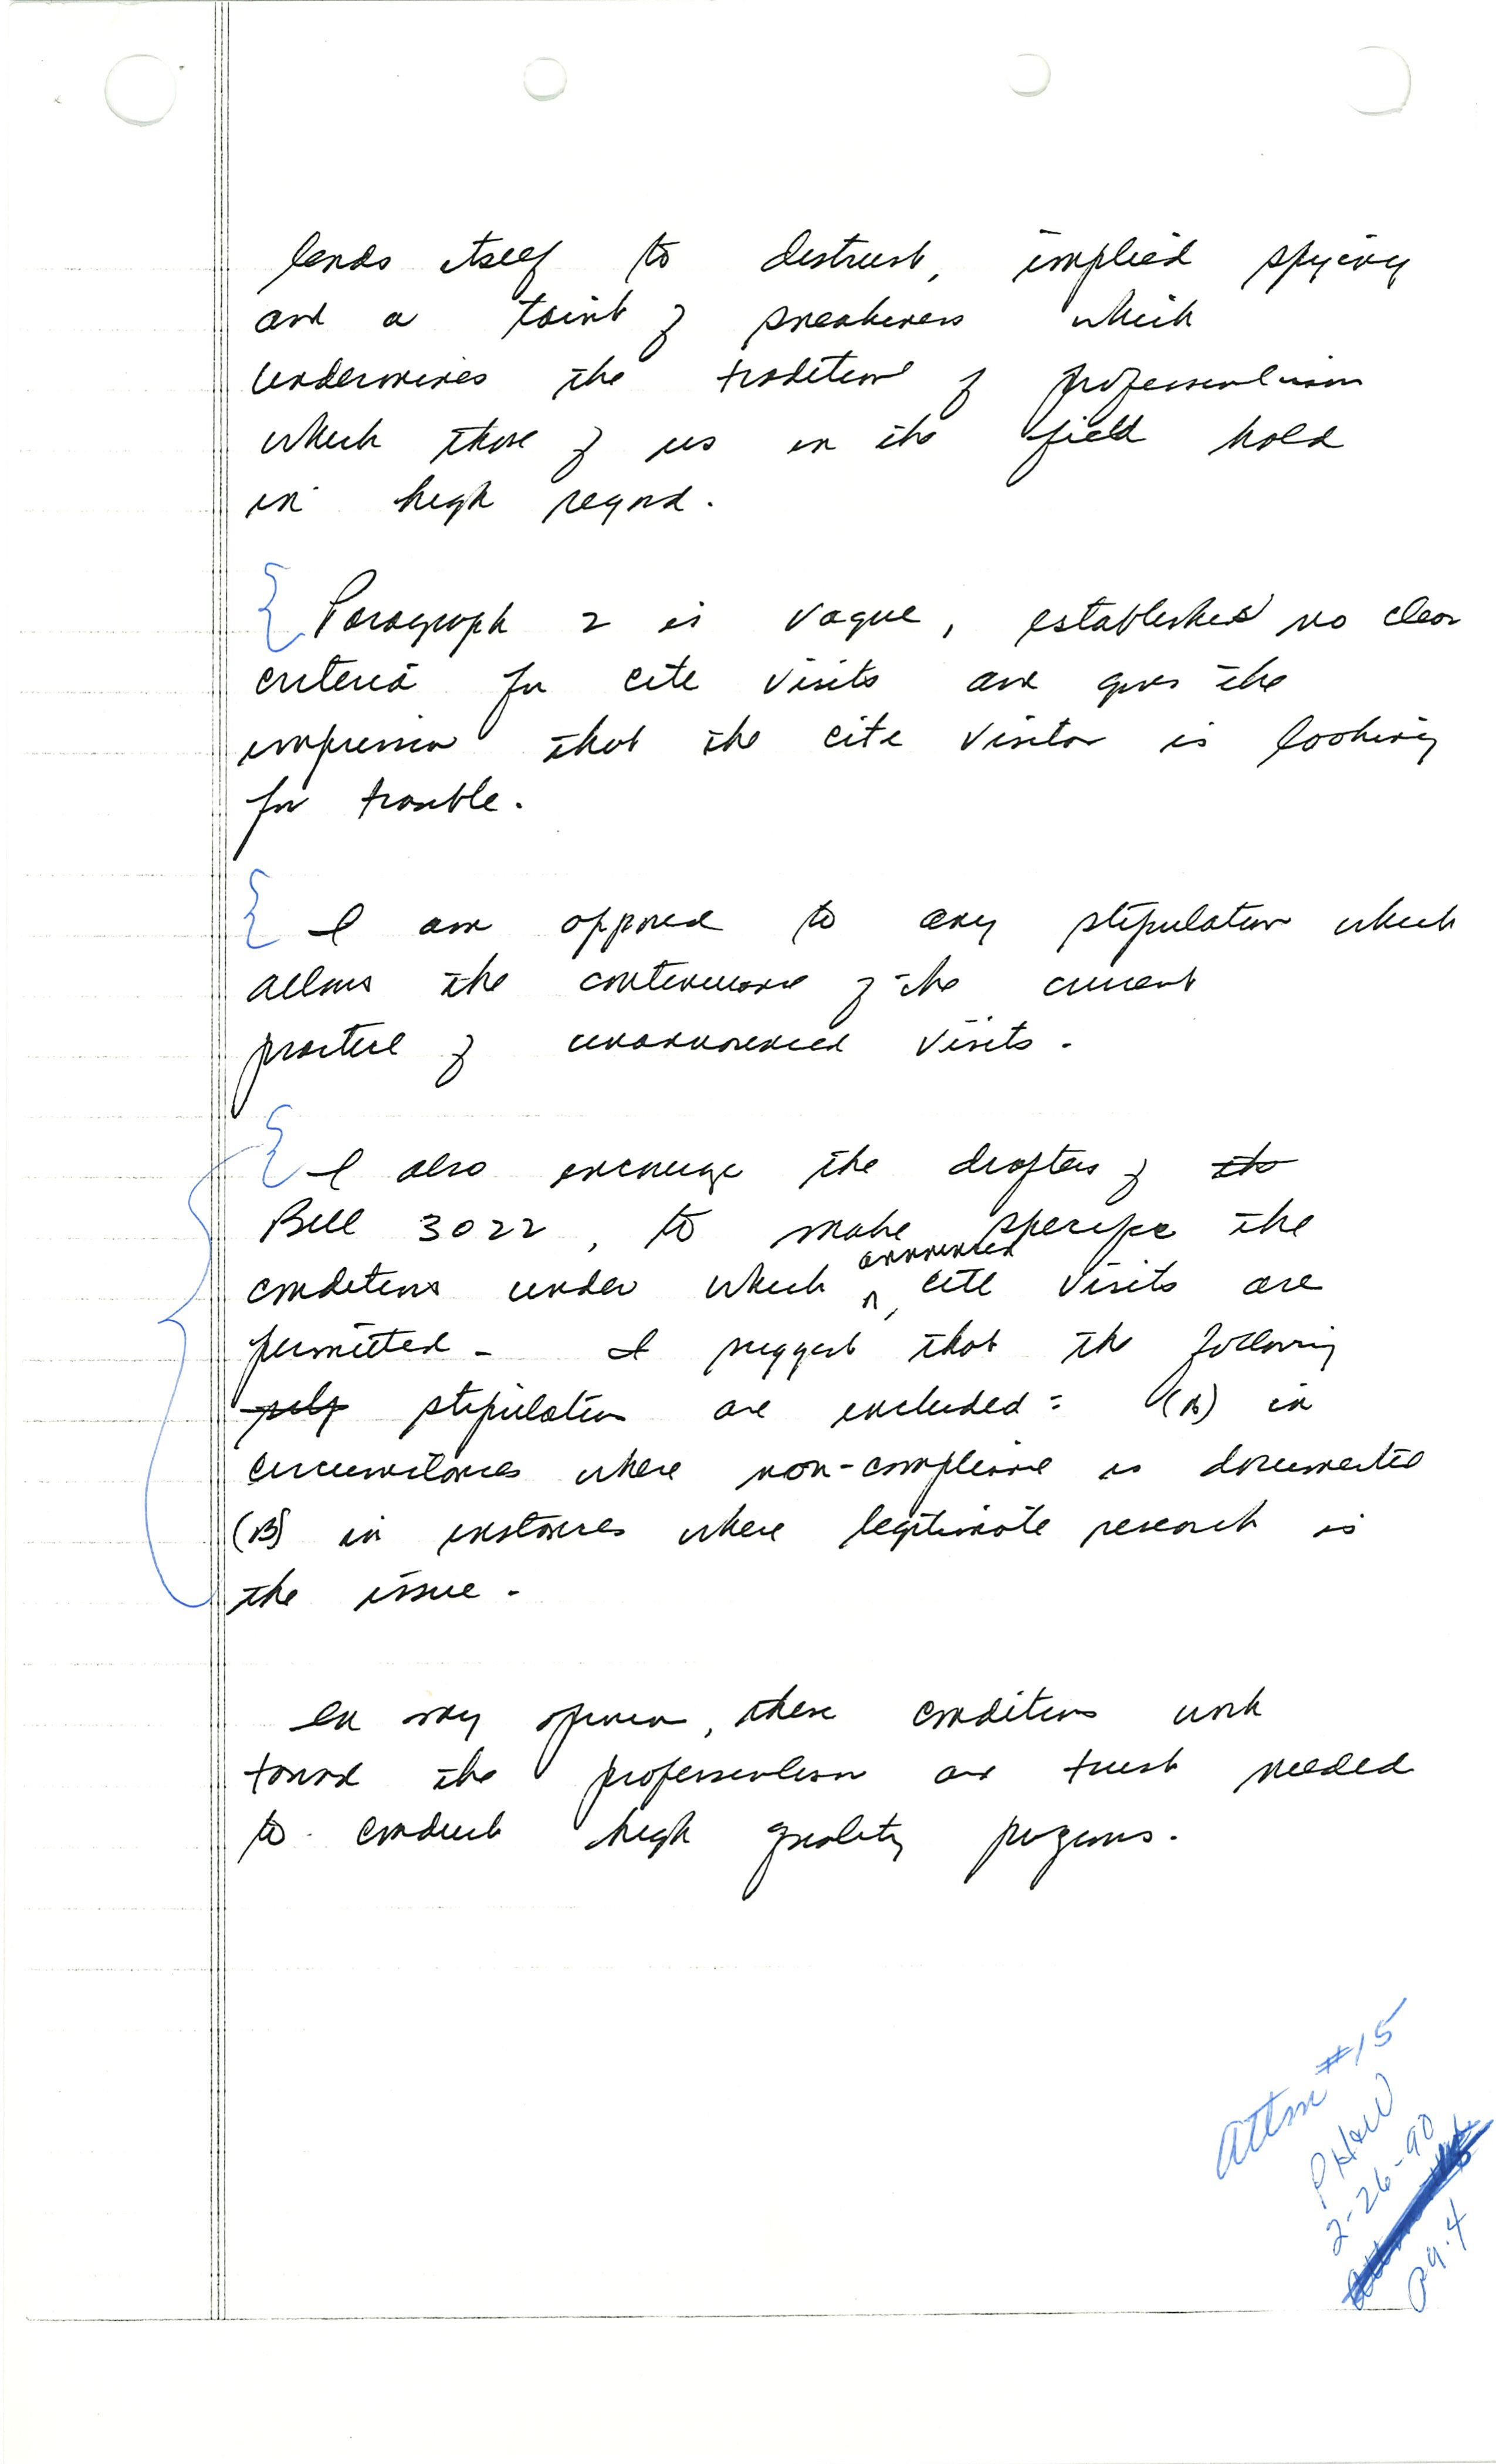 lends itself to distrust, implied spying
and a taint of sneakiness which
undermines the tradition of professionalism
which those of us in the field hold
in high regard.
Paragraph 2 is vague, establishes no clear
criteria for cite visits and gives the
impression that the cite visitor is looking
for trouble.
I am opposed to any stipulation which
allows the continuance of the current
practice of unannounced visits.
I also encourage the drafters of the
Bill 3022, to make specific the
announced
conditions under which cite visits are
permitted. I suggest that the following
stipulations are included: (A) in
circumstances where non-compliance is documented
(B) in instances where legitimate research is
the issue.
In my opinion, these conditions work
toward the professionalism and trust needed
to conduct high quality programs.
Attm #15
PH&W
2-26-90
pg. 4